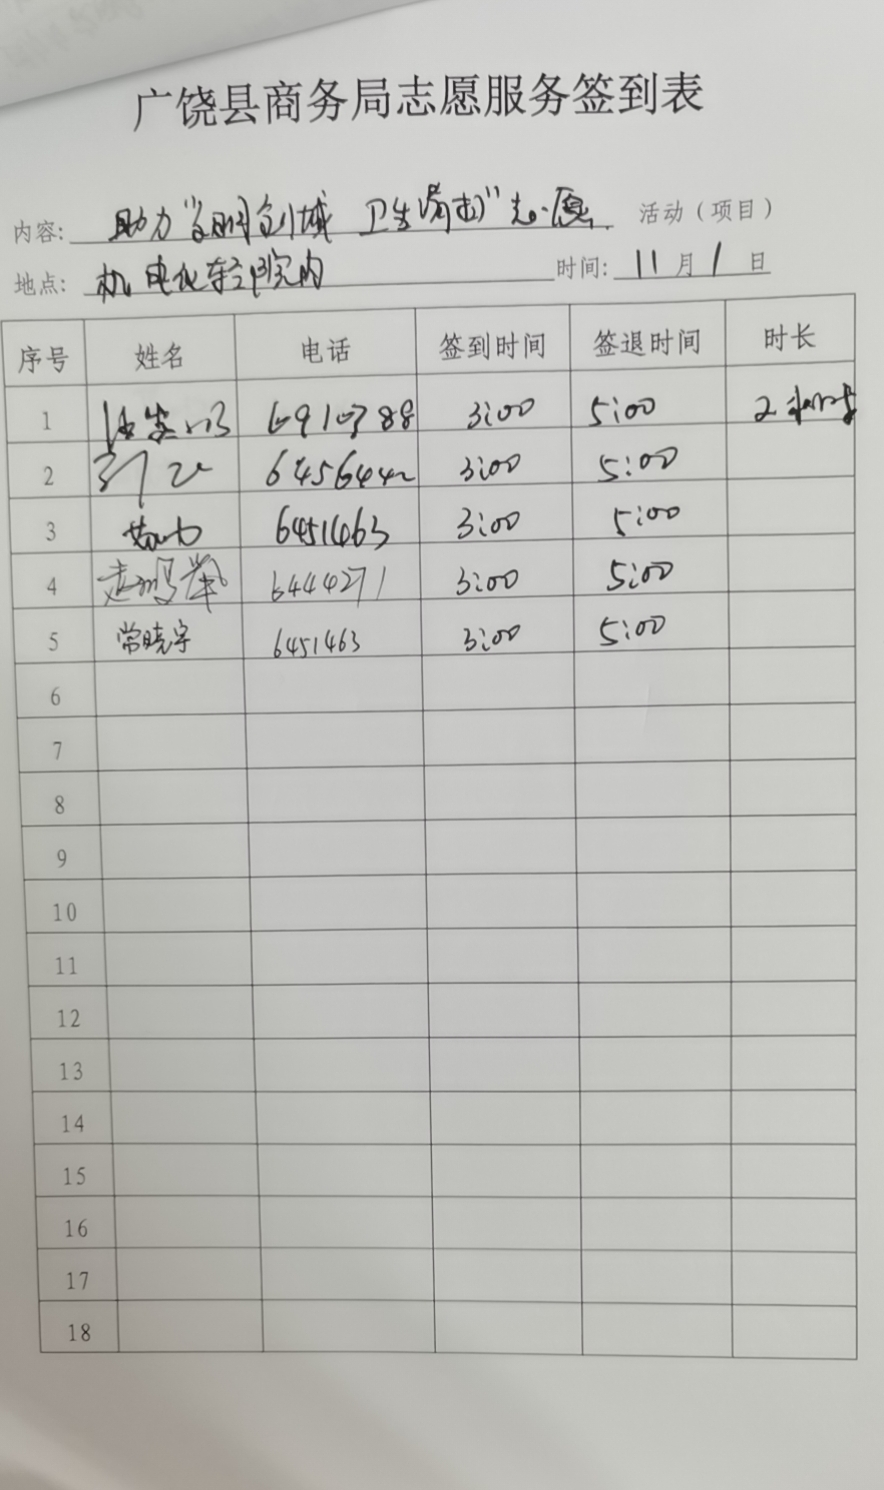 广饶县商务局志愿服务签到表
内容: 助力"文明创城 卫生清扫"志愿 活动（项目）
地点: 机电化轻院内 时间: 11月1日
序号 姓名 电话 签到时间 签退时间 时长
1 6910788 3:00 5:00 2小时
2 3:00 5:00
3 6451463 3:00 5:00
4 6444271 3:00 5:00
5 常晓宇 6451463 3:00 5:00
6
7
8
9
10
11
12
13
14
15
16
17
18